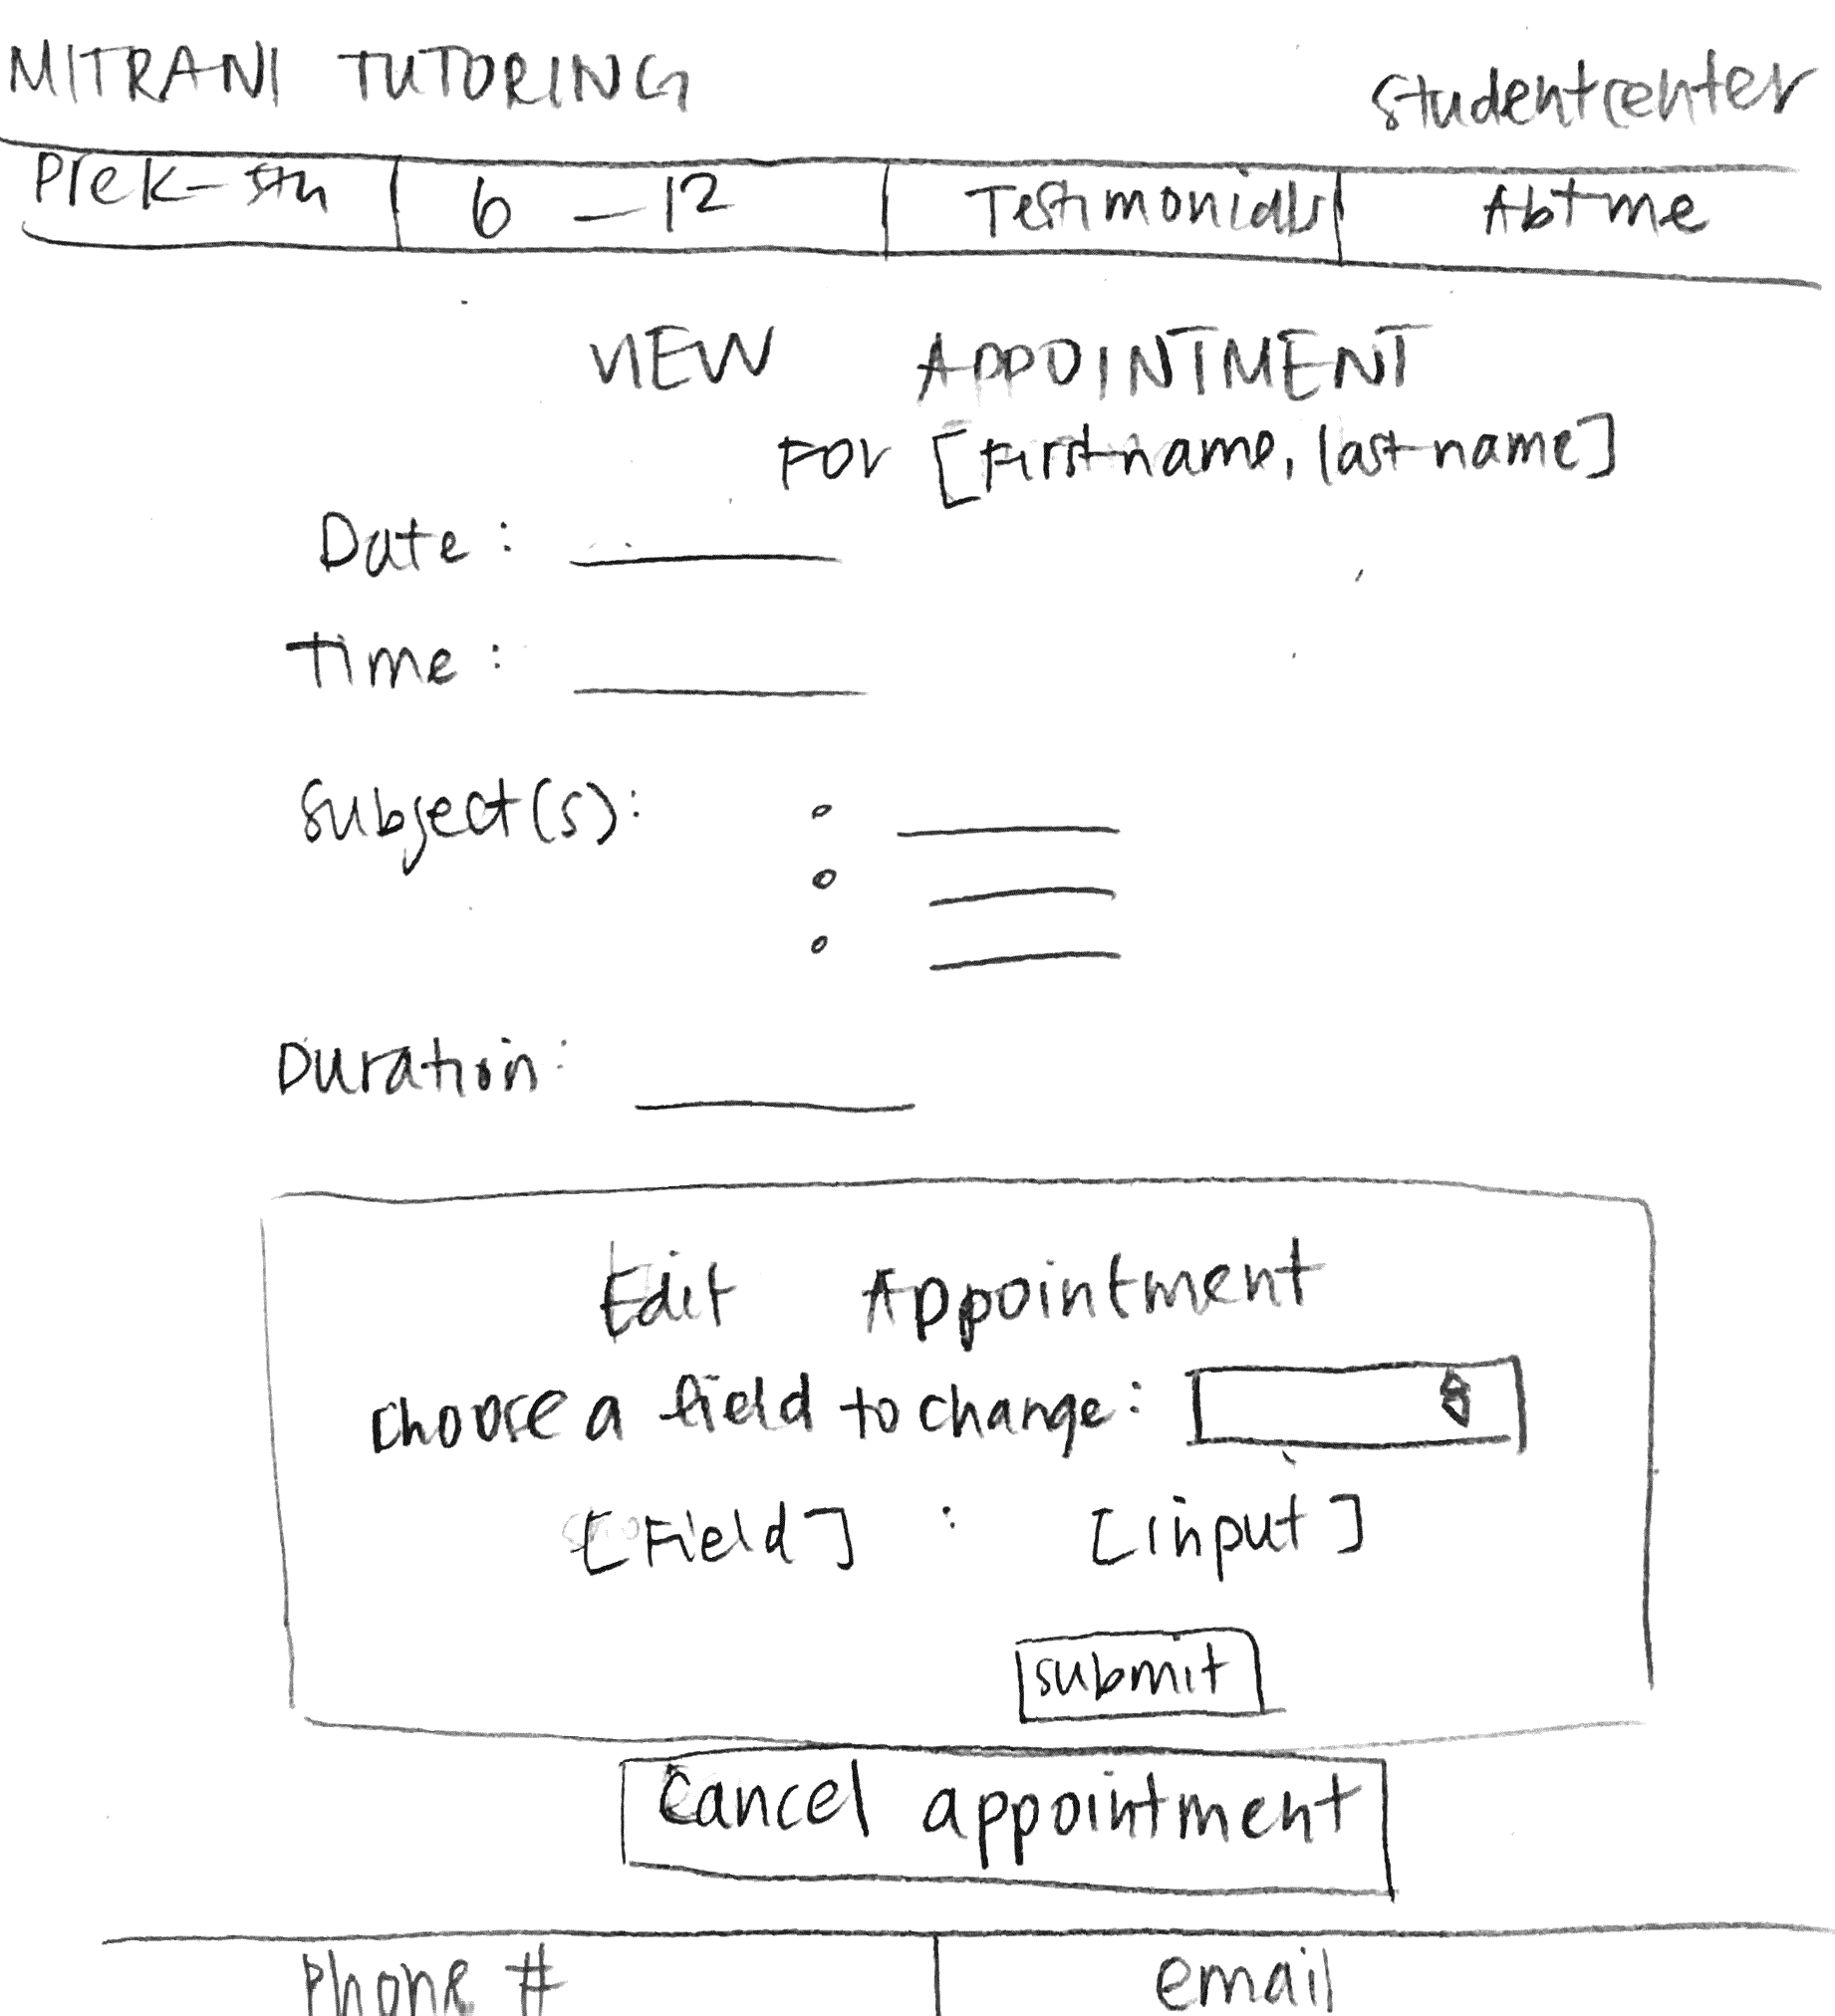 MITRANI TUTORING studentcenter
PreK-5th 6-12 Testimonials Abtme
VIEW APPOINTMENT
FOR [Firstname, lastname]
Date:
Time:
Subject(s):
Duration:
Edit Appointment
Choose a field to change:
[Field] : [input]
submit
Cancel appointment
Phone # email